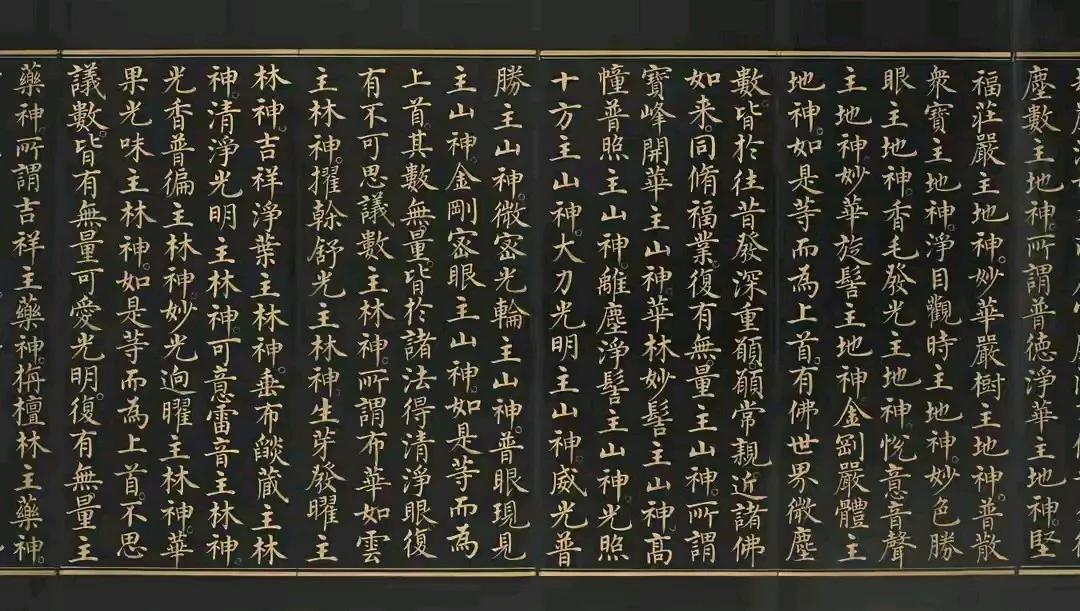 塵數主地神。所謂普德淨華主地神。堅
福莊嚴主地神。妙華嚴樹主地神。普散
衆寶主地神。淨目觀時主地神。妙色勝
眼主地神。香毛發光主地神。悅意音聲
主地神。妙華旋髻主地神。金剛嚴體主
地神。如是等而為上首。有佛世界微塵
數。皆於往昔發深重願。願常親近諸佛
如来。同脩福業。復有無量主山神。所謂
寶峰開華主山神。華林妙髻主山神。高
幢普照主山神。離塵淨髻主山神。光照
十方主山神。大力光明主山神。威光普
勝主山神。微密光輪主山神。普眼現見
主山神。金剛密眼主山神。如是等而為
上首。其數無量。皆於諸法得清淨眼。復
有不可思議數主林神。所謂布華如雲
主林神。擢幹舒光主林神。生芽發曜主
林神。吉祥淨葉主林神。垂布燄藏主林
神。清淨光明主林神。可意雷音主林神。
光香普徧主林神。妙光逈曜主林神。華
果光味主林神。如是等而為上首。不思
議數。皆有無量可愛光明。復有無量主
藥神。所謂吉祥主藥神。栴檀林主藥神。